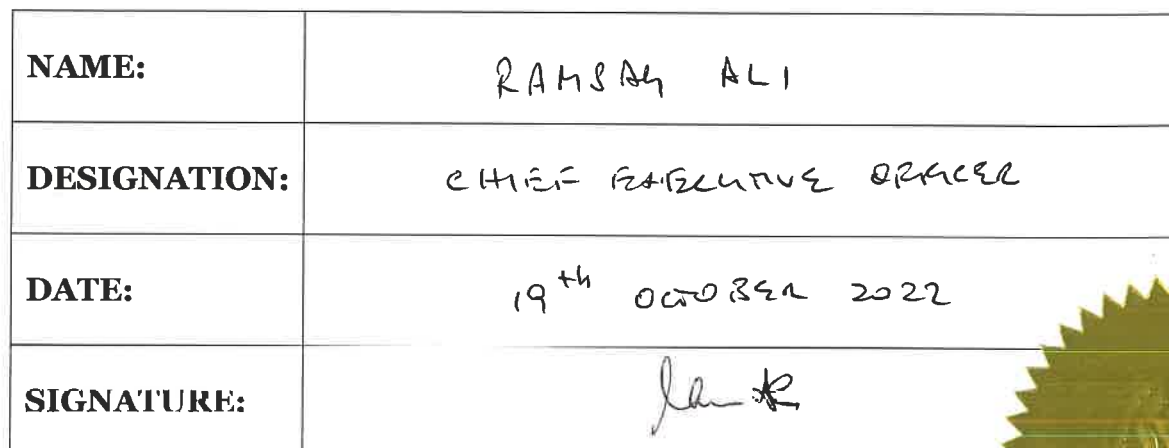 NAME: RAMSAY ALI
DESIGNATION: CHIEF EXECUTIVE OFFICER
DATE: 19th OCTOBER 2022
SIGNATURE: